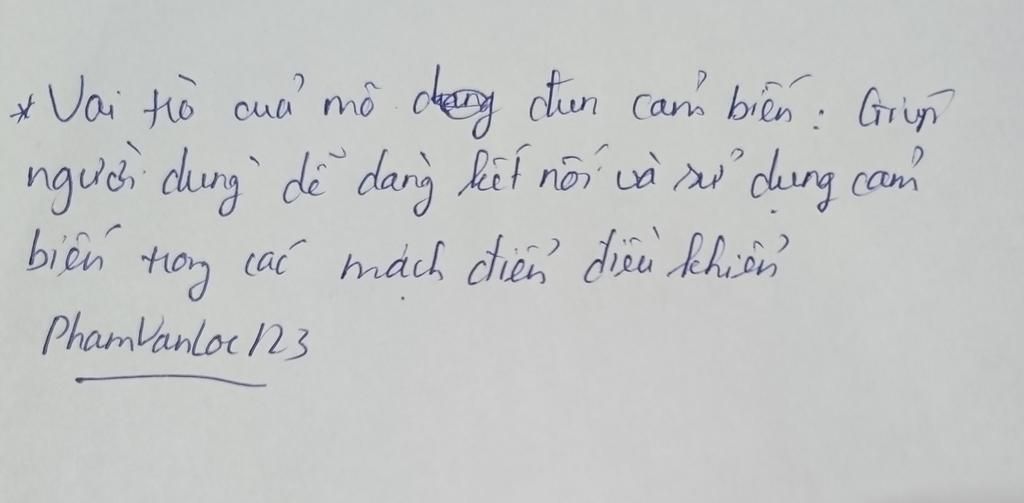 * Vai trò của mô đun cảm biến: Giúp
người dùng dễ dàng kết nối và sử dụng cảm
biến trong các mạch điện điều khiển
PhamVanLoc123